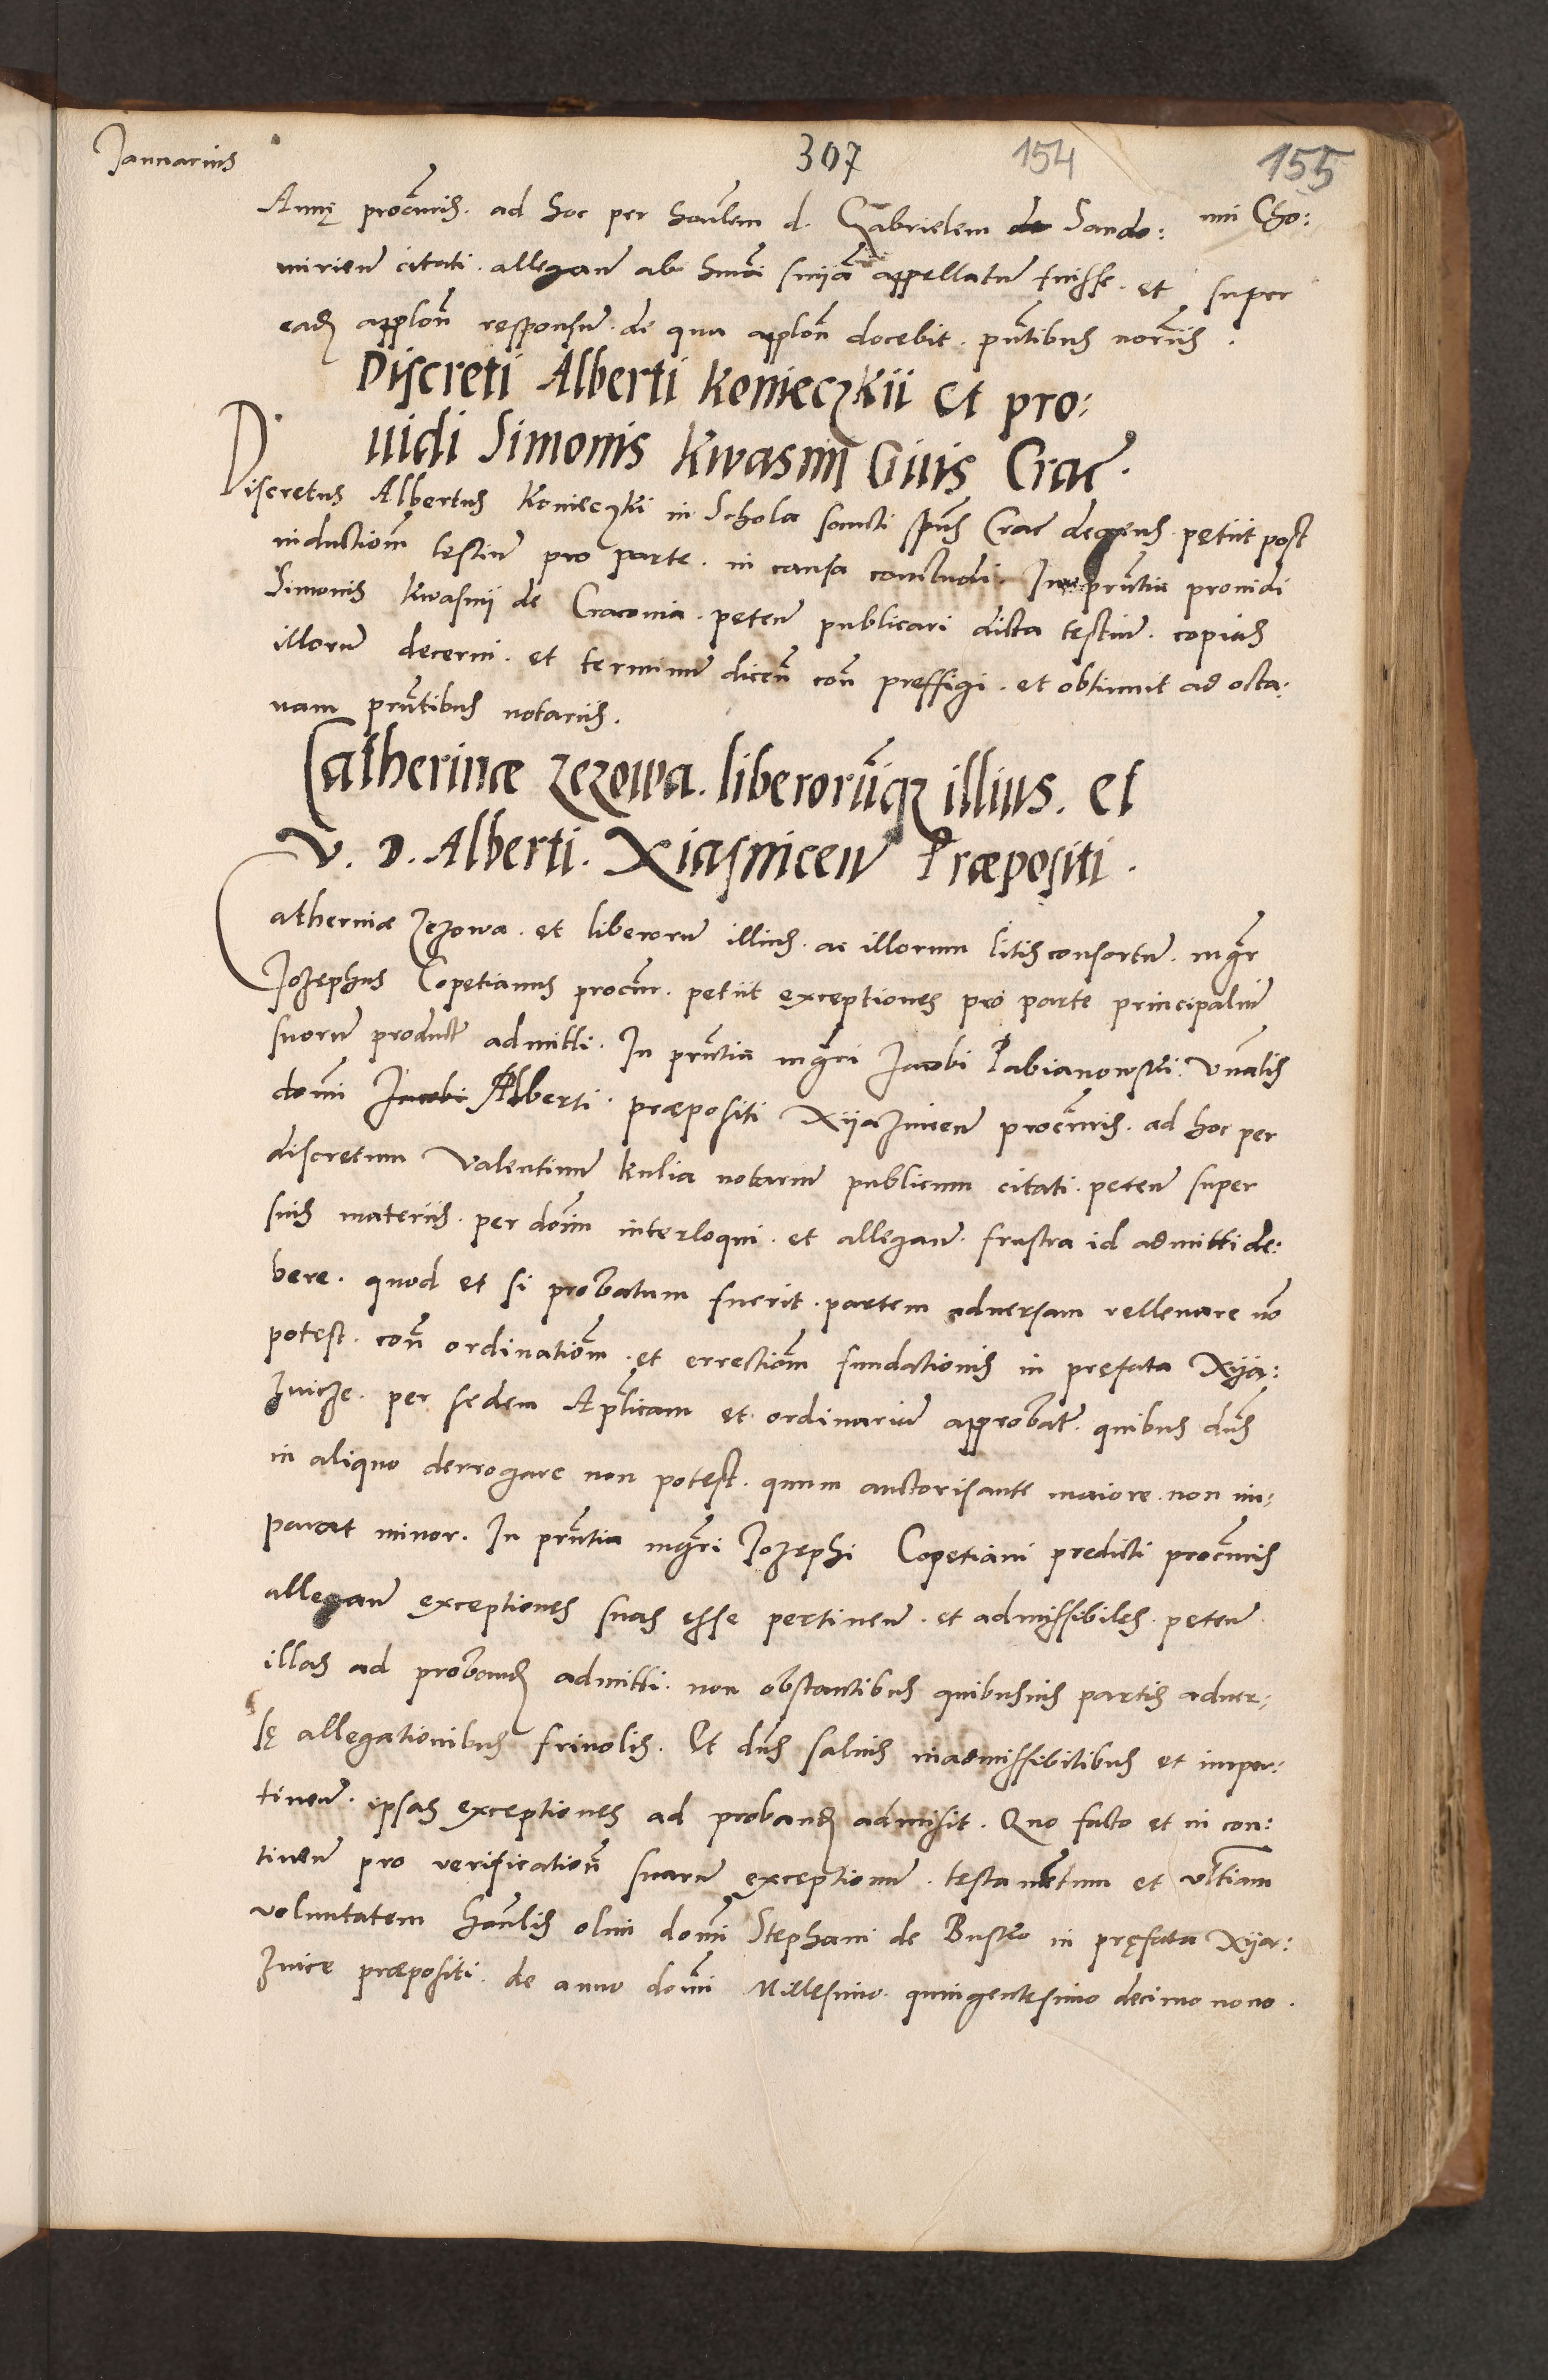 Januarius
307 154 155
Annę procũris. ad hoc per honlem d. Gabrielem de Sando: mi Cho:
mirien̄ citati. allegan̄ ab hmõi snĩa appellatum fuisse. et super
eadꝫ applõn responsum. de qua applõn docebit. pn̄tibus norijs.
Discreti Alberti Konieczkii et pro:
uidi Simonis Kwasnij Ciuis Crac̄.
Discretus Albertus Konieczki in Schola sancti spũs Crac̄ degens petiit post
inductiom̃ testium pro parte. in causa concludi. In prn̄tia prouidi
Simonis Kwasnij de Cracouia. peteñ publicari dicta testium. copias
illorum decerni. et terminum diceñ con̄ preffigi. et obtinuit ad octa:
uam prn̄tibus notariis.
Catherinæ Zezowa. liberorūqꝫ illius. et
V. D. Alberti. Xiasnicen̄ Præpositi.
Catherinæ Zezowa. et liberorum illius. ac illorum litisconsortum. mgr̄
Jozephus Copetianus procur̄. petiit exceptiones pro parte principalium
suorum product̄ admitti. In prn̄tia mgr̄i Jacobi Pabianowski. Vn̄alis
domi Jacobi Alberti. præpositi Xyaznicen̄ procũris. ad hoc per
discretum Valentinum Kulia notarium publicum citati. peteñ super
suis materiis. per dom̄ interloqui. et allegan̄. frustra id admitti de:
bere. quod et si probatum fuerit. partem aduersam relleuare no
potest. con̄ ordinatiom̃. et errectiom̃ fundationis in pręfata Xya:
znicze. per sedem Ap̃licam et ordinarium approbat̄. quibus dn̄s
in aliquo derrogare non potest. quum auctorisante maiore. non im:
parat minor. In prn̄tia mgr̄i Jozephi Copetiani predicti procũris
allegan̄ exceptiones suas esse pertinen̄. et admissibiles. peteñ
illas ad probandꝫ admitti. non obstantibus quibusuis partis aduer:
sę allegationibus friuolis. Et dn̄s saluis inadmissibilibus et imper:
tinen̄. ipsas exceptiones ad probandꝫ admisit. Quo facto et in con:
tinen̄ pro verificatiōn suarum exceptionum. testamentum et vltimam
voluntatem honlis olim domi Stephani de Busko in pręfata Xya:
znice præpositi. de anno domi Millesimo. quingentesimo decimo nono.